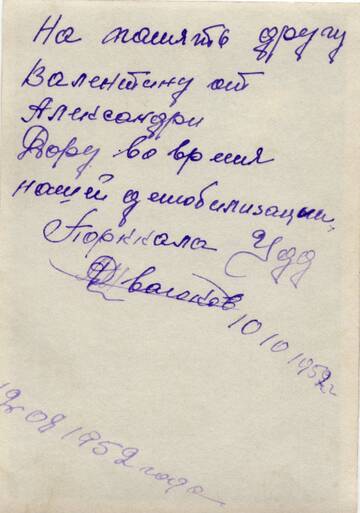 На память другу
Валентину от
Александри
Дору во время
нашей демобилизации.
Порккала Удд
10/10/1952 г
08/1952 года